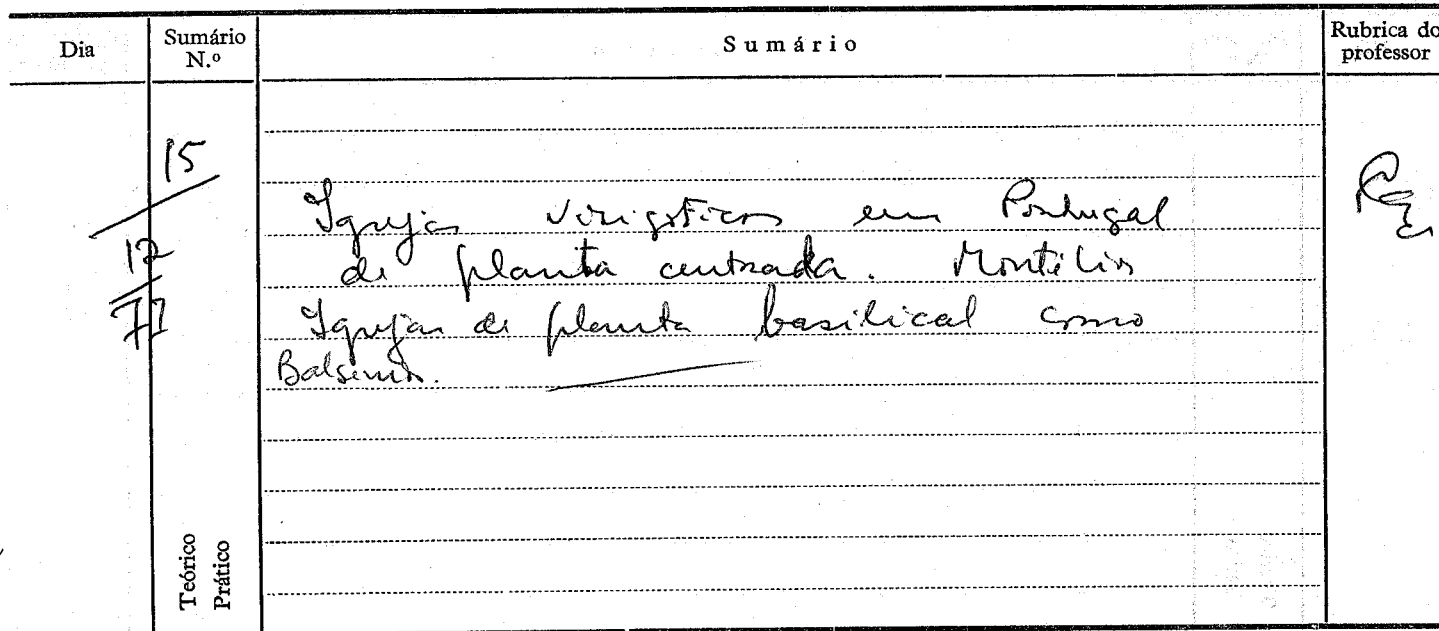 Dia
Sumário N.º
Sumário
Rubrica do professor
15
12
77
Igrejas visigóticas em Portugal
de planta centrada. Montélios
Igrejas de planta basilical como
Balsemão.
Teórico
Prático